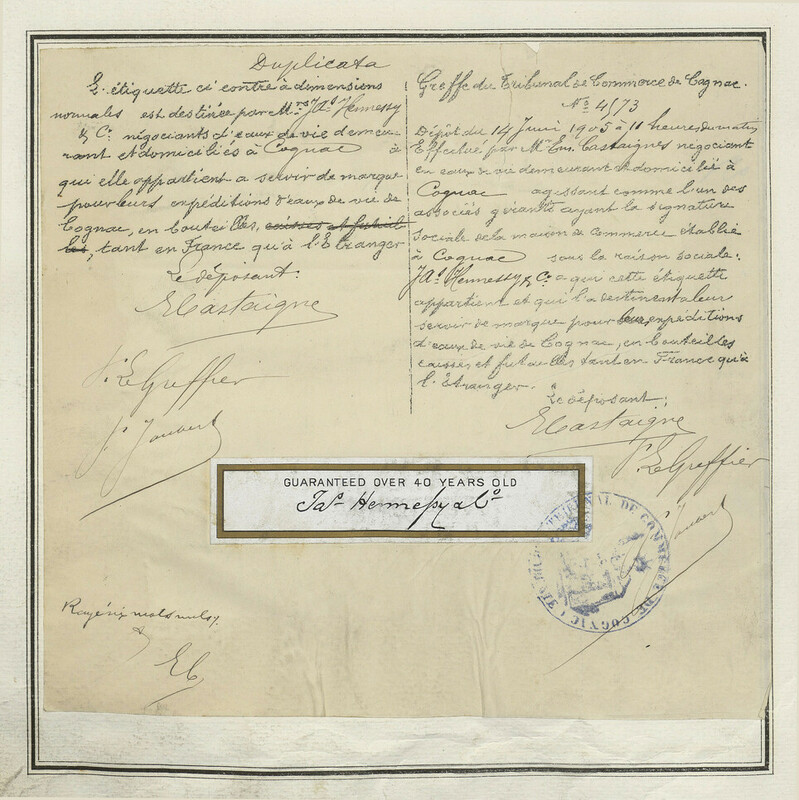 Duplicata
L'étiquette ci contre à dimensions
normales est destinée par Mrs Jas Hennessy
& Co négociants d'eaux de vie demeu-
rant et domiciliés à Cognac à
qui elle appartient a servir de marque
pour leurs expéditions d'eaux de vie de
Cognac, en bouteilles, caisses et futail
les, tant en France qu'à l'Etranger
Le déposant:
ECastaigne
Pr Le Greffier
Joubert
Rayé six mots nuls.
EC
Greffe du Tribunal de Commerce de Cognac.
No 4173
Dépôt du 14 Juin 1905 à 11 heures du matin
Effectué par Mr Em. Castaignes négociant
en eaux de vie demeurant et domicilié à
Cognac agissant comme l'un des
associés gérants ayant la signature
sociale de la maison de Commerce établie
à Cognac sous la raison sociale:
Jas Hennessy & Co a qui cette étiquette
appartient et qui l'a destinent a leur
servir de marque pour leurs expéditions
d'eaux de vie de Cognac, en bouteilles
caisses et futailles tant en France qu'à
l'Etranger.
Le déposant:
ECastaigne
Pr Le Greffier
Joubert
GUARANTEED OVER 40 YEARS OLD
Jas Hennessy & Co
TRIBUNAL DE COMMERCE DE COGNAC